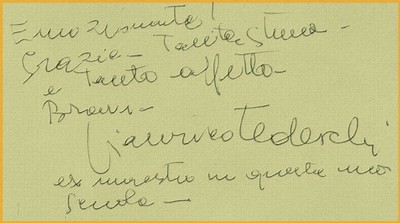 Emozionante!
Grazie - Tanta stima -
Tanto affetto -
e
Bravi -
Gianrico Tedeschi
ex maestro in questa mia
scuola -